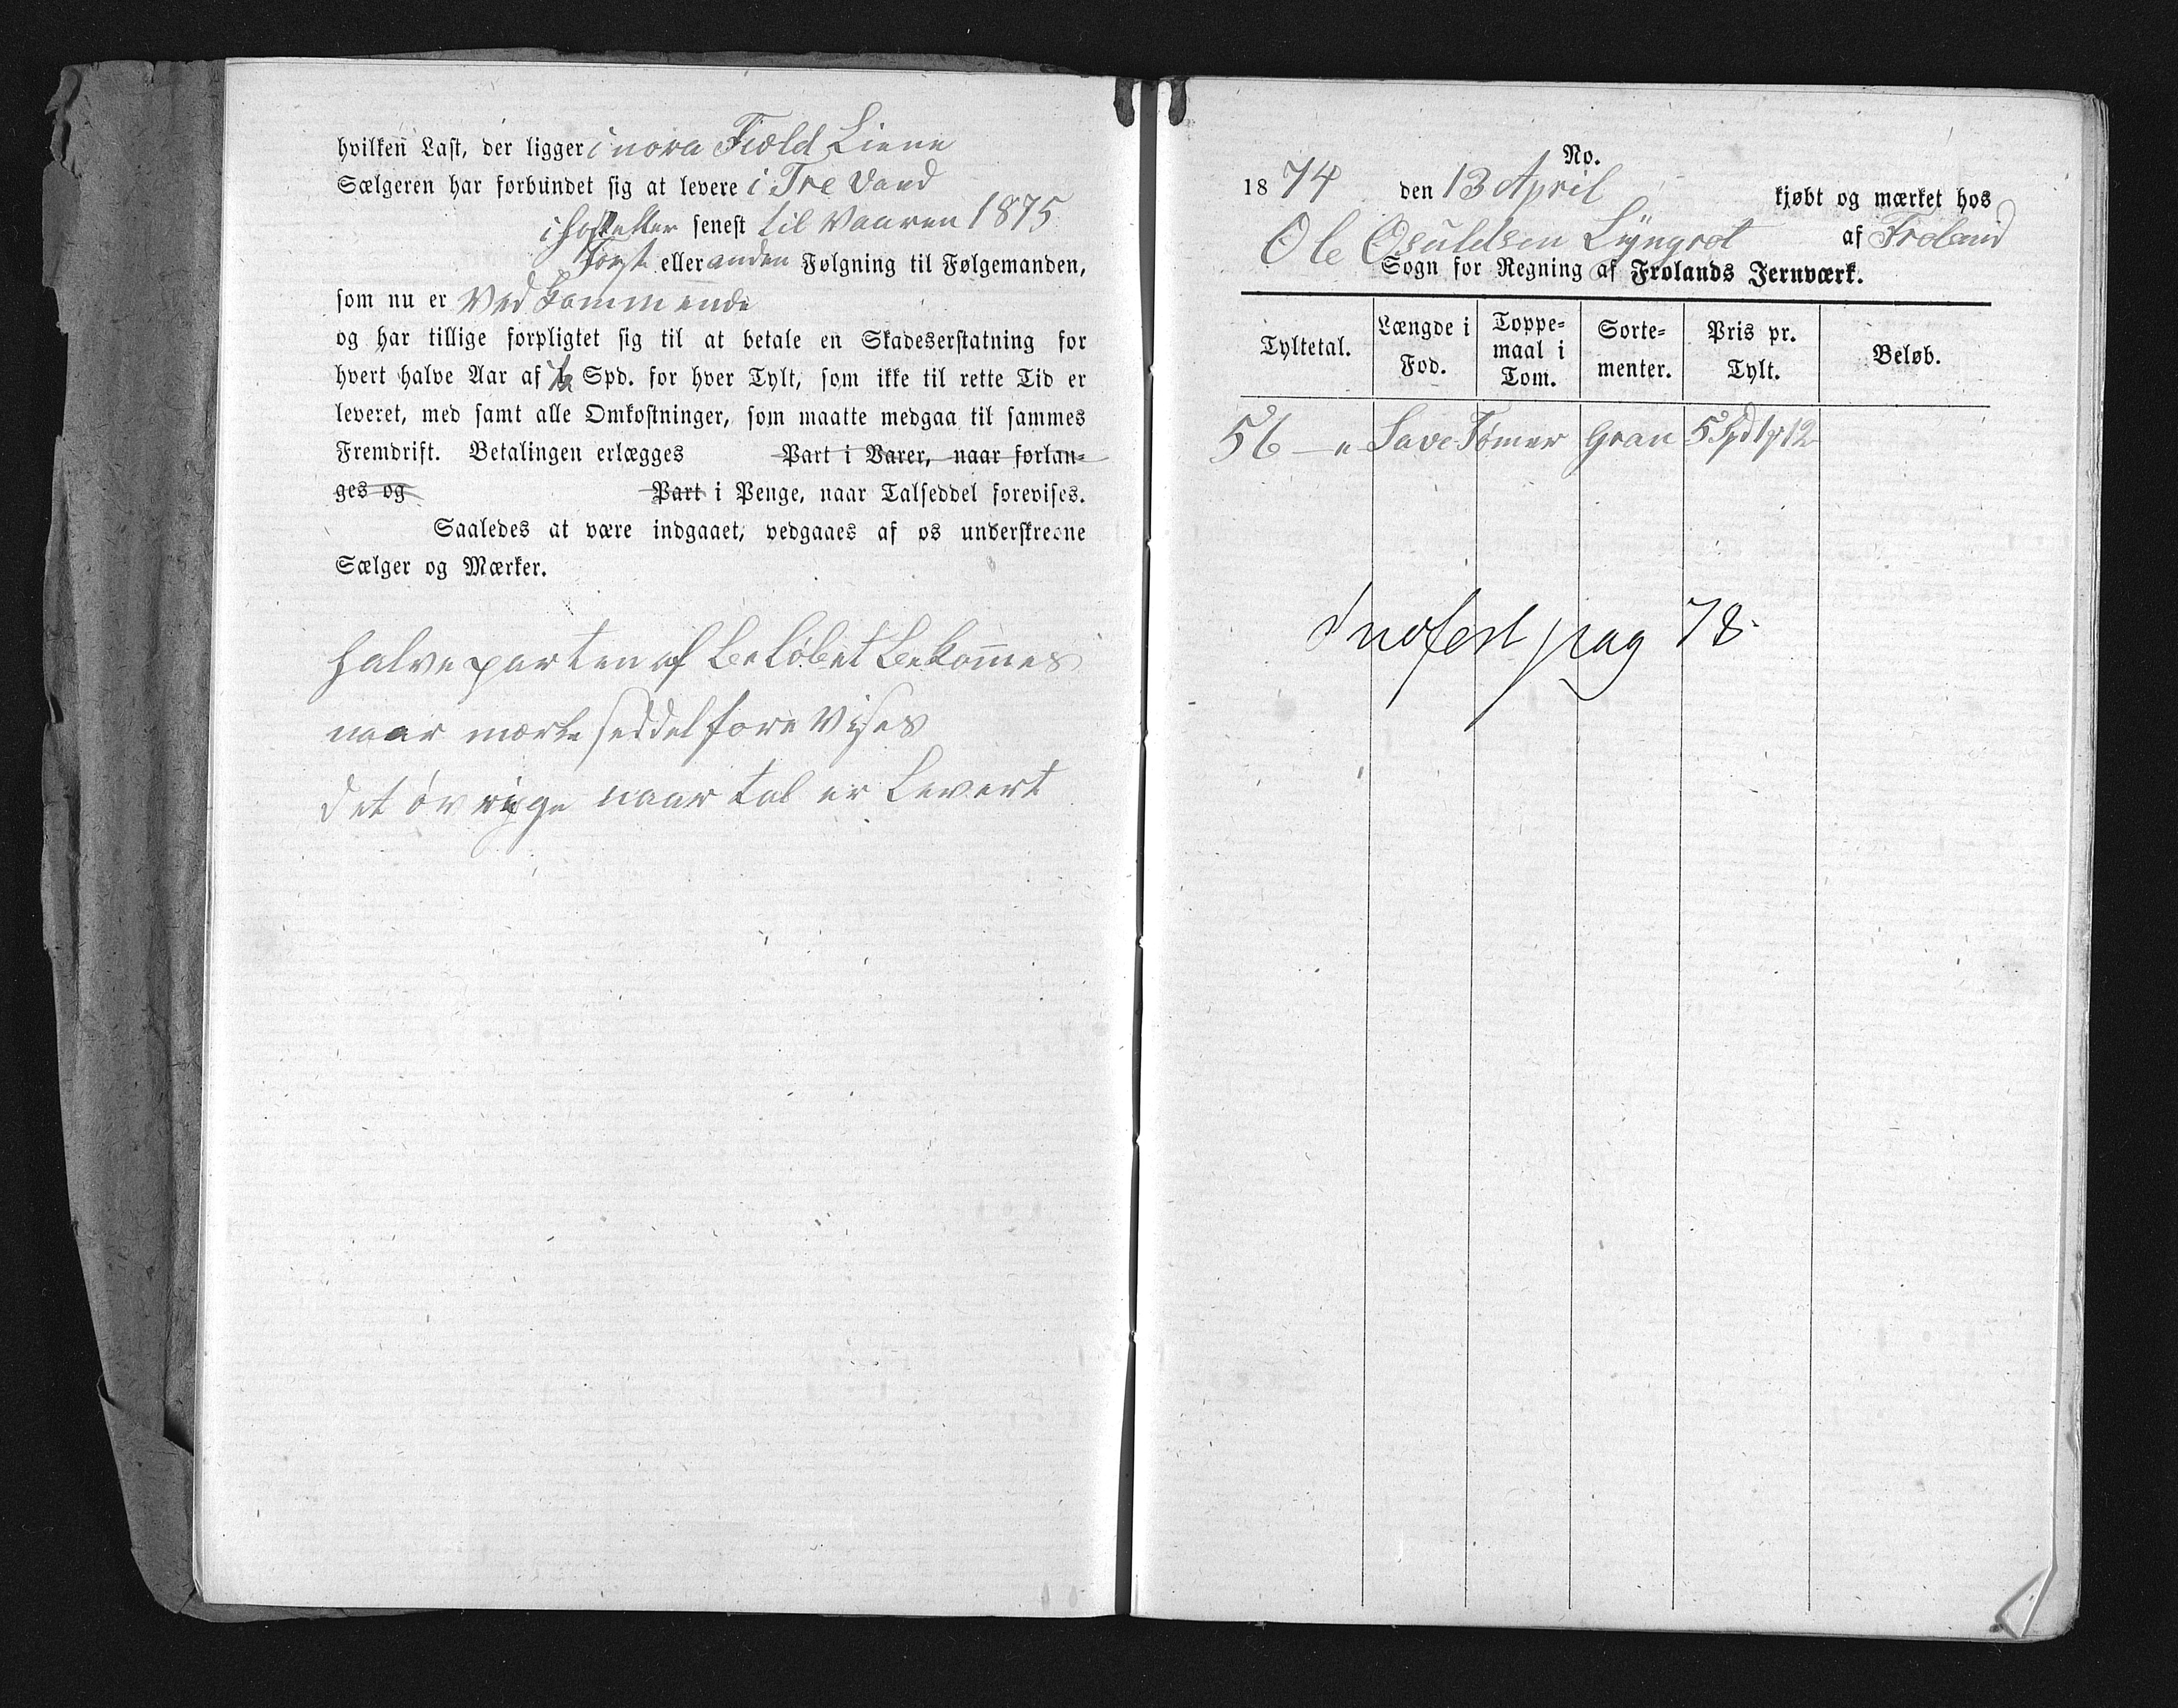 hvilken Last, der ligger i nora Fiæld Liene
Sælgeren har forbundet sig at levere i Tre Vand
i høst eller senest til Vaaren 1875
først eller anden Følgning til Følgemanden,
som nu er Vedkommende
og har tillige forpligtet sig til at betale en Skadeserstatning for
hvert halve Aar af ½ Spd. for hver Tylt, som ikke til rette Tid er
leveret, med samt alle Omkostninger, som maatte medgaa til sammes
Fremdrift. Betalingen erlægges Part i Varer, naar forlan-
ges og Part i Penge, naar Talseddel forevises.
Saaledes at være indgaaet, vedgaaes af os underskrevne
Sælger og Mærker.
halve parten af Beløbet Bekommes
naar mærke seddel fore Vises
det øvrige naar tal er Levert
No.
1874 den 13 April kjøbt og mærket hos
Ole Osuldsen Lyngrot af Froland
Sogn for Regning af Frolands Jernværk.
Tyltetal. Længde i Fod. Toppe-maal i Tom. Sorte-menter. Pris pr. Tylt. Beløb.
56 — " Save Tømer Gran 5 Spd 1 ₰ 12
Indført pag 78